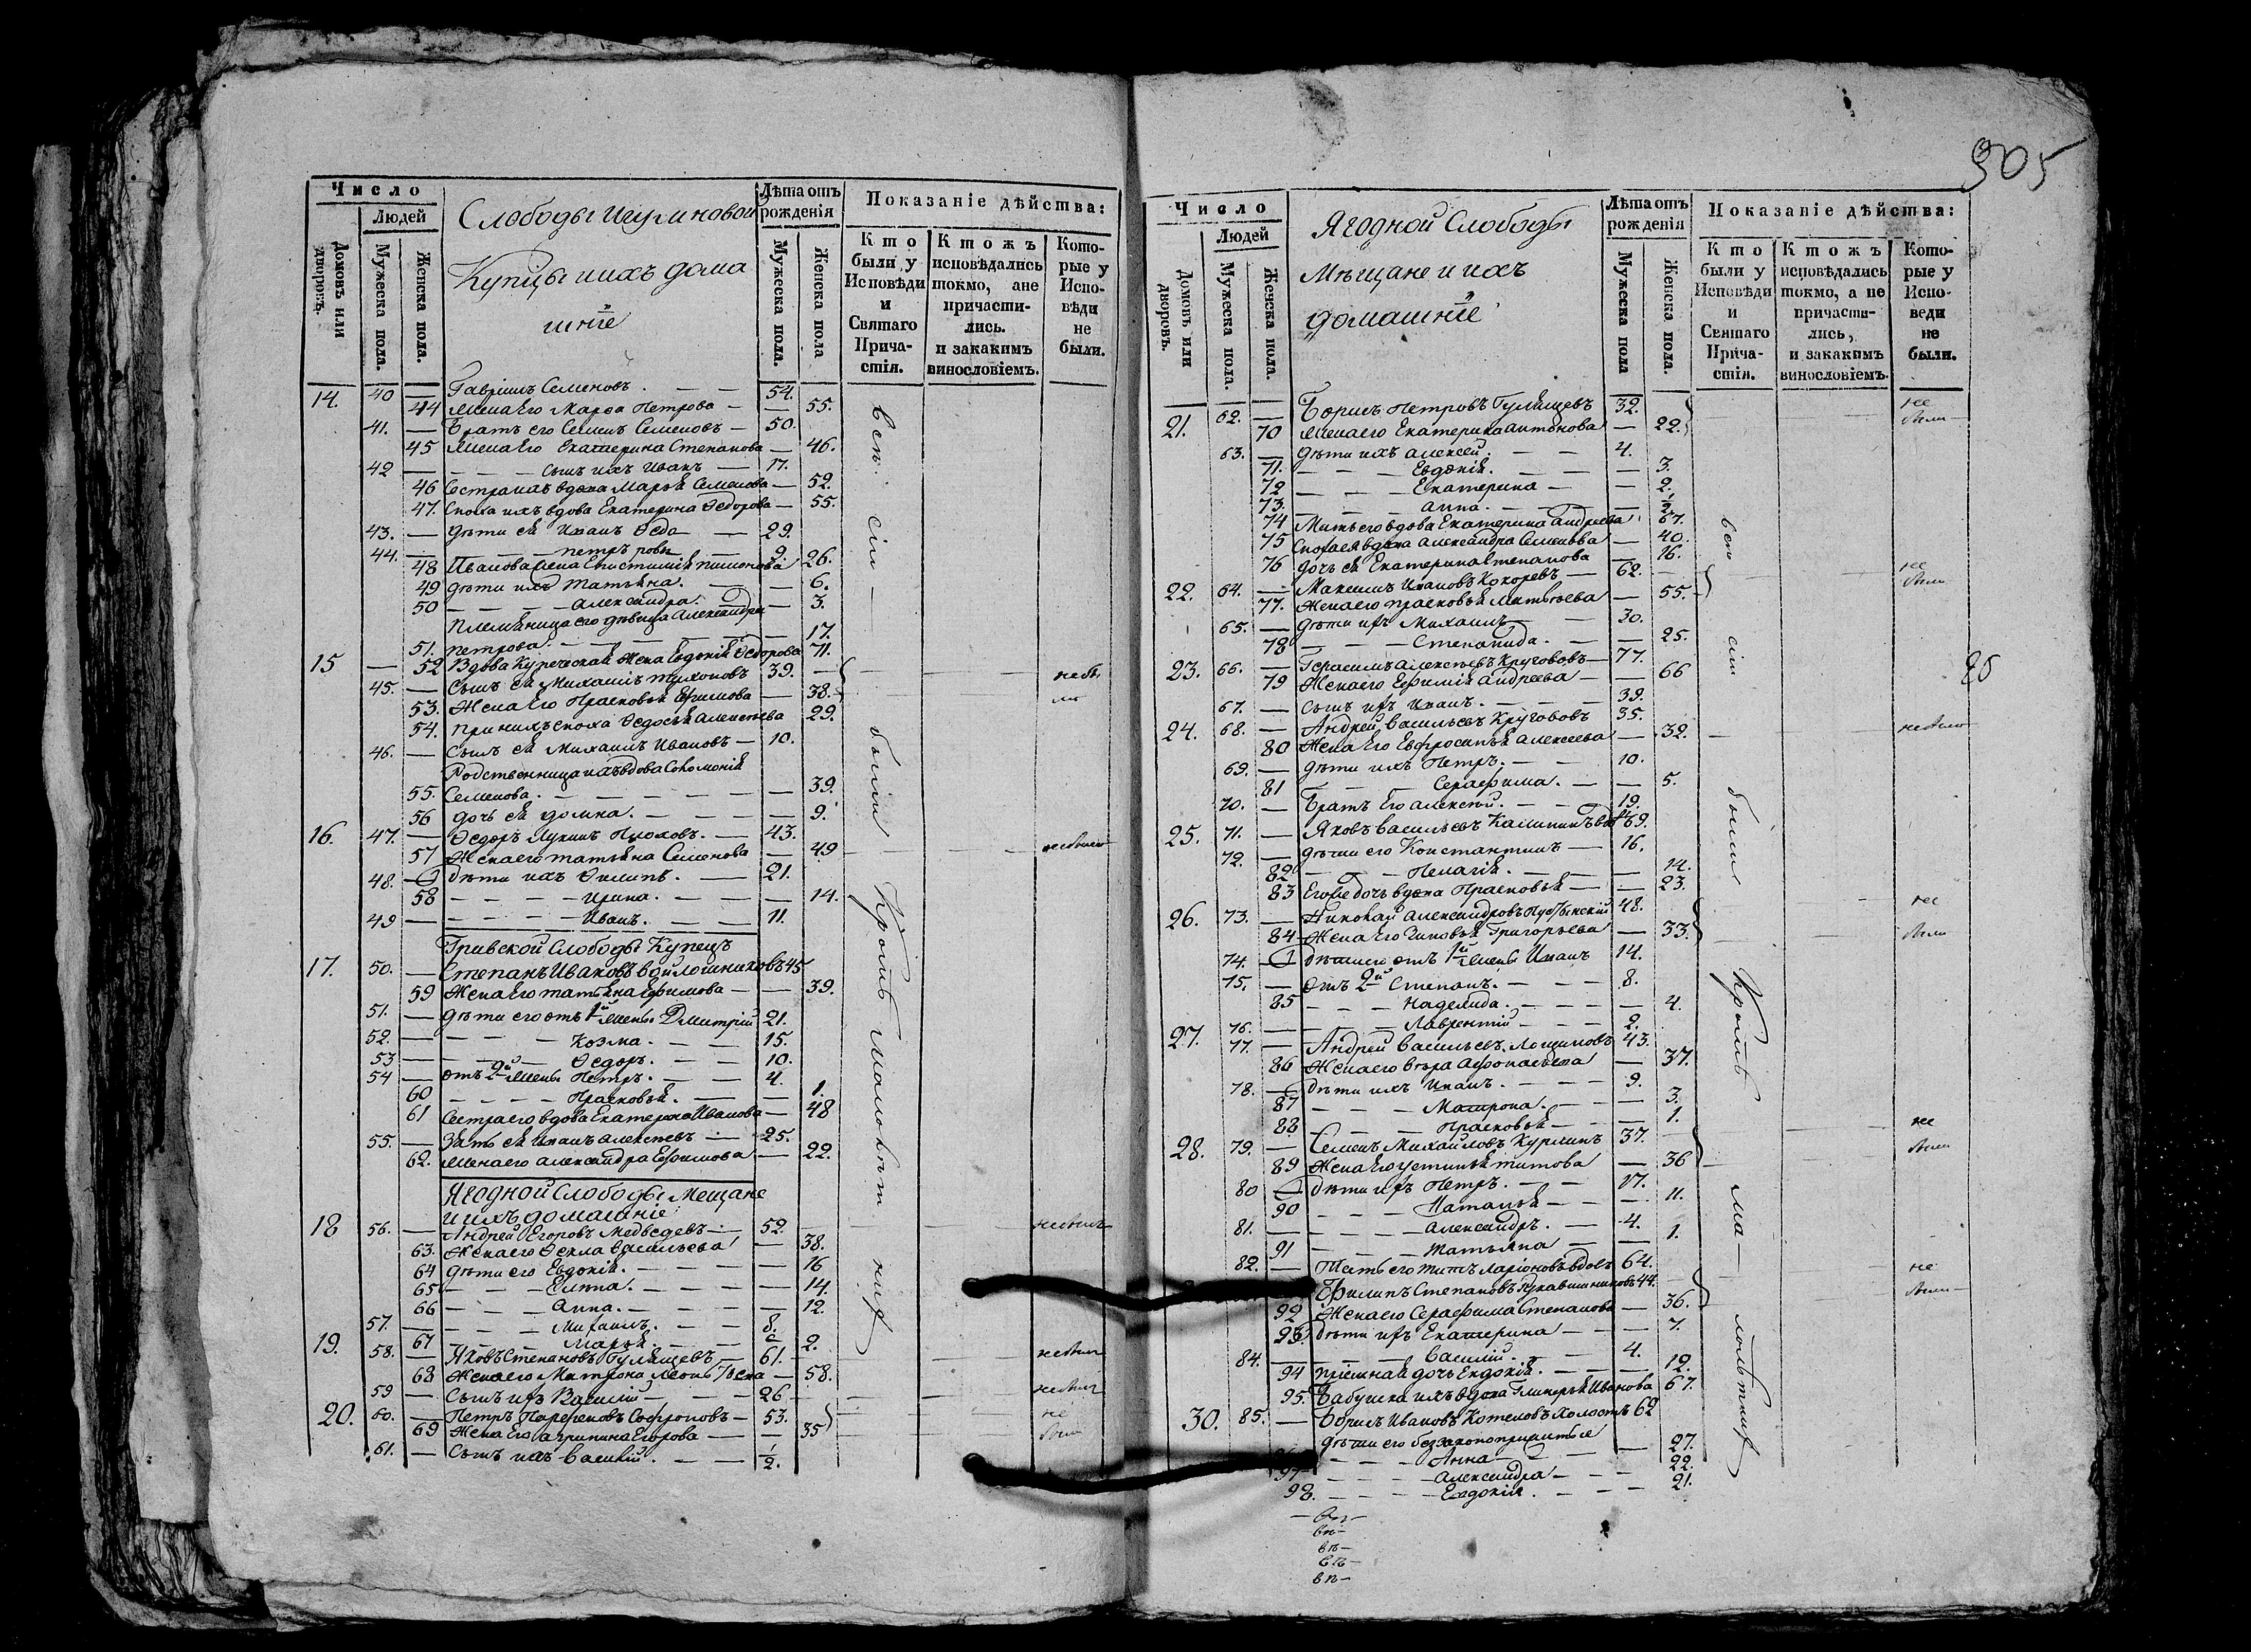 305
Число
Людей
Домовъ или дворовъ.
Мужеска пола.
Женска пола.
Слободы
Купцы и ихъ дома
шнїе
Лѣта отъ рожденія
Мужеска пола.
Женска пола
Показаніе дѣйства:
Кто были у Исповѣди и Святаго Прича-стія.
Ктожъ исповѣдались токмо, а не причасти-лись. и закакимъ винословіемъ.
Кото-рые у Испо-вѣди не были.
14. 40 — Гавріилъ Семеновъ. — — 54.
44 Жена Его Марѳа Петрова — — 55.
41. — Братъ его Семенъ Семеновъ — 50.
45 Жена Его Екатерина Степанова — 46.
42 — — — — сынъ ихъ Иванъ — 17.
46 Сестра ихъ вдова Марья Семенова — 52.
47. Сноха ихъ вдова Екатерина Ѳедорова — 55.
43. — Дѣти ея Иванъ Ѳедо — 29.
44. — — — петръ ровы — 9.
48 Иванова жена 26.
49 дѣти ихъ Татьяна. — — 6.
50 — — — — Александра. — — 3.
Племянница его дѣвица Александра
51. петрова. — — — — 17.
15 — 52 Вдова Купеческая Жена Евдокія Ѳедорова 71.
45. — Сынъ ея Михаилъ Тихоновъ 39. —
53. Жена Его Прасковья Ефимова — 38.
54. При нихъ сноха Ѳедосья Алексѣева 29.
46. — Сынъ ея Михаилъ Ивановъ — 10.
Родственница ихъ вдова Соломонія
55. Семенова. — — — — — — 39.
56 дочь ея домна. — — — — 9.
16. 47. — Ѳедоръ Лукинъ — 43.
57 Жена его татьяна Семенова — 49
48. — Дѣти ихъ Филипъ. — 21.
58 — — — — Ирина. — — — 14.
49 — — — — — Иванъ. — — 11.
Гривской Слободы Купецъ
17. 50. — Степанъ Ивановъ Войлошниковъ 45
59 Жена Его татьяна Ефимова — — 39.
51. — дѣти его отъ 1й жены Дмитрій 21.
52. — — — — Козма. — — 15.
53 — — — — Ѳедоръ. — — 10.
54 — отъ 2й жены Петръ. — — 4.
60 — — — — Прасковья. — — 1.
61 Сестра его вдова Екатерина Иванова — 48
55. — Зять ея Иванъ Алексѣевъ — 25.
62. Жена его Александра Ефимова — 22.
Ягодной Слободы Мещане
и ихъ домашнїе
18 56. — Андрей Егоровъ Медведевъ — 52. —
63. Жена его Ѳекла Васильева — 38.
64 дѣти его Евдокія. — — — — 16
65 — — — Елена. — — — 14.
66 — — — — Анна. — — — — 12.
57. — — — — Михаилъ. — — 8.
67 — — — Марья. — — — 2.
19. 58. — Яковъ Степановъ Гулящевъ 61. —
68 Жена его Матрона Леонтьева — 58.
59 — Сынъ ихъ Василій — — — 26 —
20. 60. — Петръ Парфеновъ Софроновъ — 53.
69 Жена Его Агрипина Егорова — — 35
61. — Сынъ ихъ Василій. — — 1/2.
всѣ сіи были Кромѣ малолѣтнихъ
не были
Число
Людей
Домовъ или дворовъ.
Мужеска пола.
Женска пола.
Ягодной Слободы
Мѣщане и ихъ
домашнїе
Лѣта отъ рожденія
Мужеска пола
Женска пола.
Показаніе дѣйства:
Кто были у Исповѣди и Святаго Прича-стія.
Ктожъ исповѣдались токмо, а не причасти-лись, и закакимъ винословіемъ.
Кото-рые у Испо-веди не были.
21. 62. — Борисъ Петровъ Гулящевъ 32.
70 Жена его Екатерина Антонова — 22.
63. — дѣти ихъ Алексей. — — 4.
71. — — — Евдокія. — — — 3.
72 — — — Екатерина — — 2.
73. — — — Анна. — — — 1/2
74 Мать его вдова Екатерина Андреева 67.
75 Сноха ея вдова Александра Семенова — 40.
76 дочь ея Екатерина Степанова 16.
22. 64. — Максимъ Ивановъ Кокоревъ — 62. —
77. Жена его прасковья Матвѣева — 55.
65. — дѣти ихъ Михаилъ — — 30.
78 — — — Степанида. — — 25.
23. 66. — Герасимъ Алексѣевъ Круговъ — 77.
79 Жена его Ефимія Андреева — — 66
67. — сынъ ихъ Иванъ. — — — 39.
24. 68. — Андрей Васильевъ Круговъ 35.
80 Жена Его Евфросинья Алексеева — 32.
69. — дѣти ихъ Петръ. — — 10.
81 — — — Серафима. — — 5.
70. — Братъ Его Алексѣй. — — 19.
25. 71. — Яковъ Васильевъ Калининъ вдовъ 69.
72. — дѣти его Константинъ — 16.
82 — — — Пелагія. — — — 14.
83 Его же дочь вдова Прасковья — — 23.
26. 73. — Николай Александровъ Пустынскій 48.
84 Жена Его Зиновья Григорьева — 33.
74. — Дѣти его отъ 1й жены Иванъ 14.
75. — Отъ 2й Степанъ. — — — 8.
85 — — — Надежда. — — — — 4.
76. — — — — Лаврентій — — — 2.
27. 77. — Андрей Васильевъ Лощиловъ 43.
86 Жена его Вѣра Афонасьева — 37.
78. — Дѣти ихъ Иванъ. — — — 9.
87 — — — Матрона. — — — 3.
88 — — — Прасковья — — — 1.
28. 79. — Семенъ Михайловъ Курлинъ 37. —
89 Жена Его Устинья Титова — 36
80 Дѣти ихъ Петръ. — — 17.
90 — — — Наталья — — — 11.
81. — — — — Александръ. — 4.
91 — — — Татьяна — — 1.
82. — Тесть его Титъ Ларіоновъ вдовъ 64.
Филипъ Степановъ Рукавишниковъ 44.
92 Жена его Серафима Степанова — 36.
93. Дѣти ихъ Екатерина — — — 7.
84. — — — — Василій. — — — 4.
94 пріемная дочь Евдокія. — — — 12.
95. Бабушка ихъ вдова Гликерья Иванова 67.
30. 85. — Борисъ Ивановъ Котеловъ холостъ 62
дѣти его беззаконоприжитые
— — — — Анна — — — 27.
97 — — — — Александра — — — 22.
98. — — — — Евдокія. — — — 21.
всѣ сіи были Кромѣ ма—лолѣтнихъ
не были